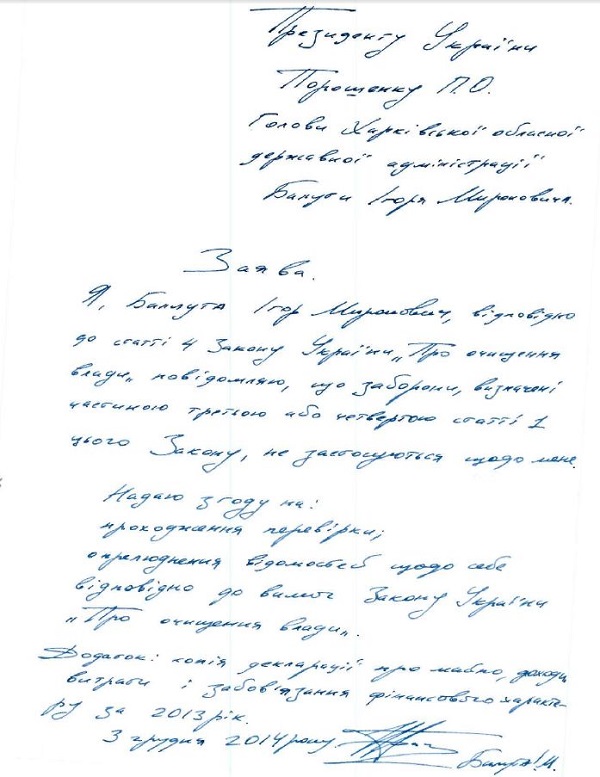 Президенту України
Порошенку П.О.
Голови Харківської обласної
державної адміністрації
Балути Ігоря Мироновича.
Заява.
Я, Балута Ігор Миронович, відповідно
до статті 4 Закону України „Про очищення
влади„ повідомляю, що заборони, визначені
частиною третьою або четвертою статті 1
цього Закону, не застосуються щодо мене.
Надаю згоду на:
проходження перевірки;
оприлюднення відомостей щодо себе
відповідно до вимог Закону України
„Про очищення влади„.
Додаток: копія декларації про майно, доходи,
витрати і забов'язання фінансового характе-
ру за 2013 рік.
3 грудня 2014 року. Балута І.М.